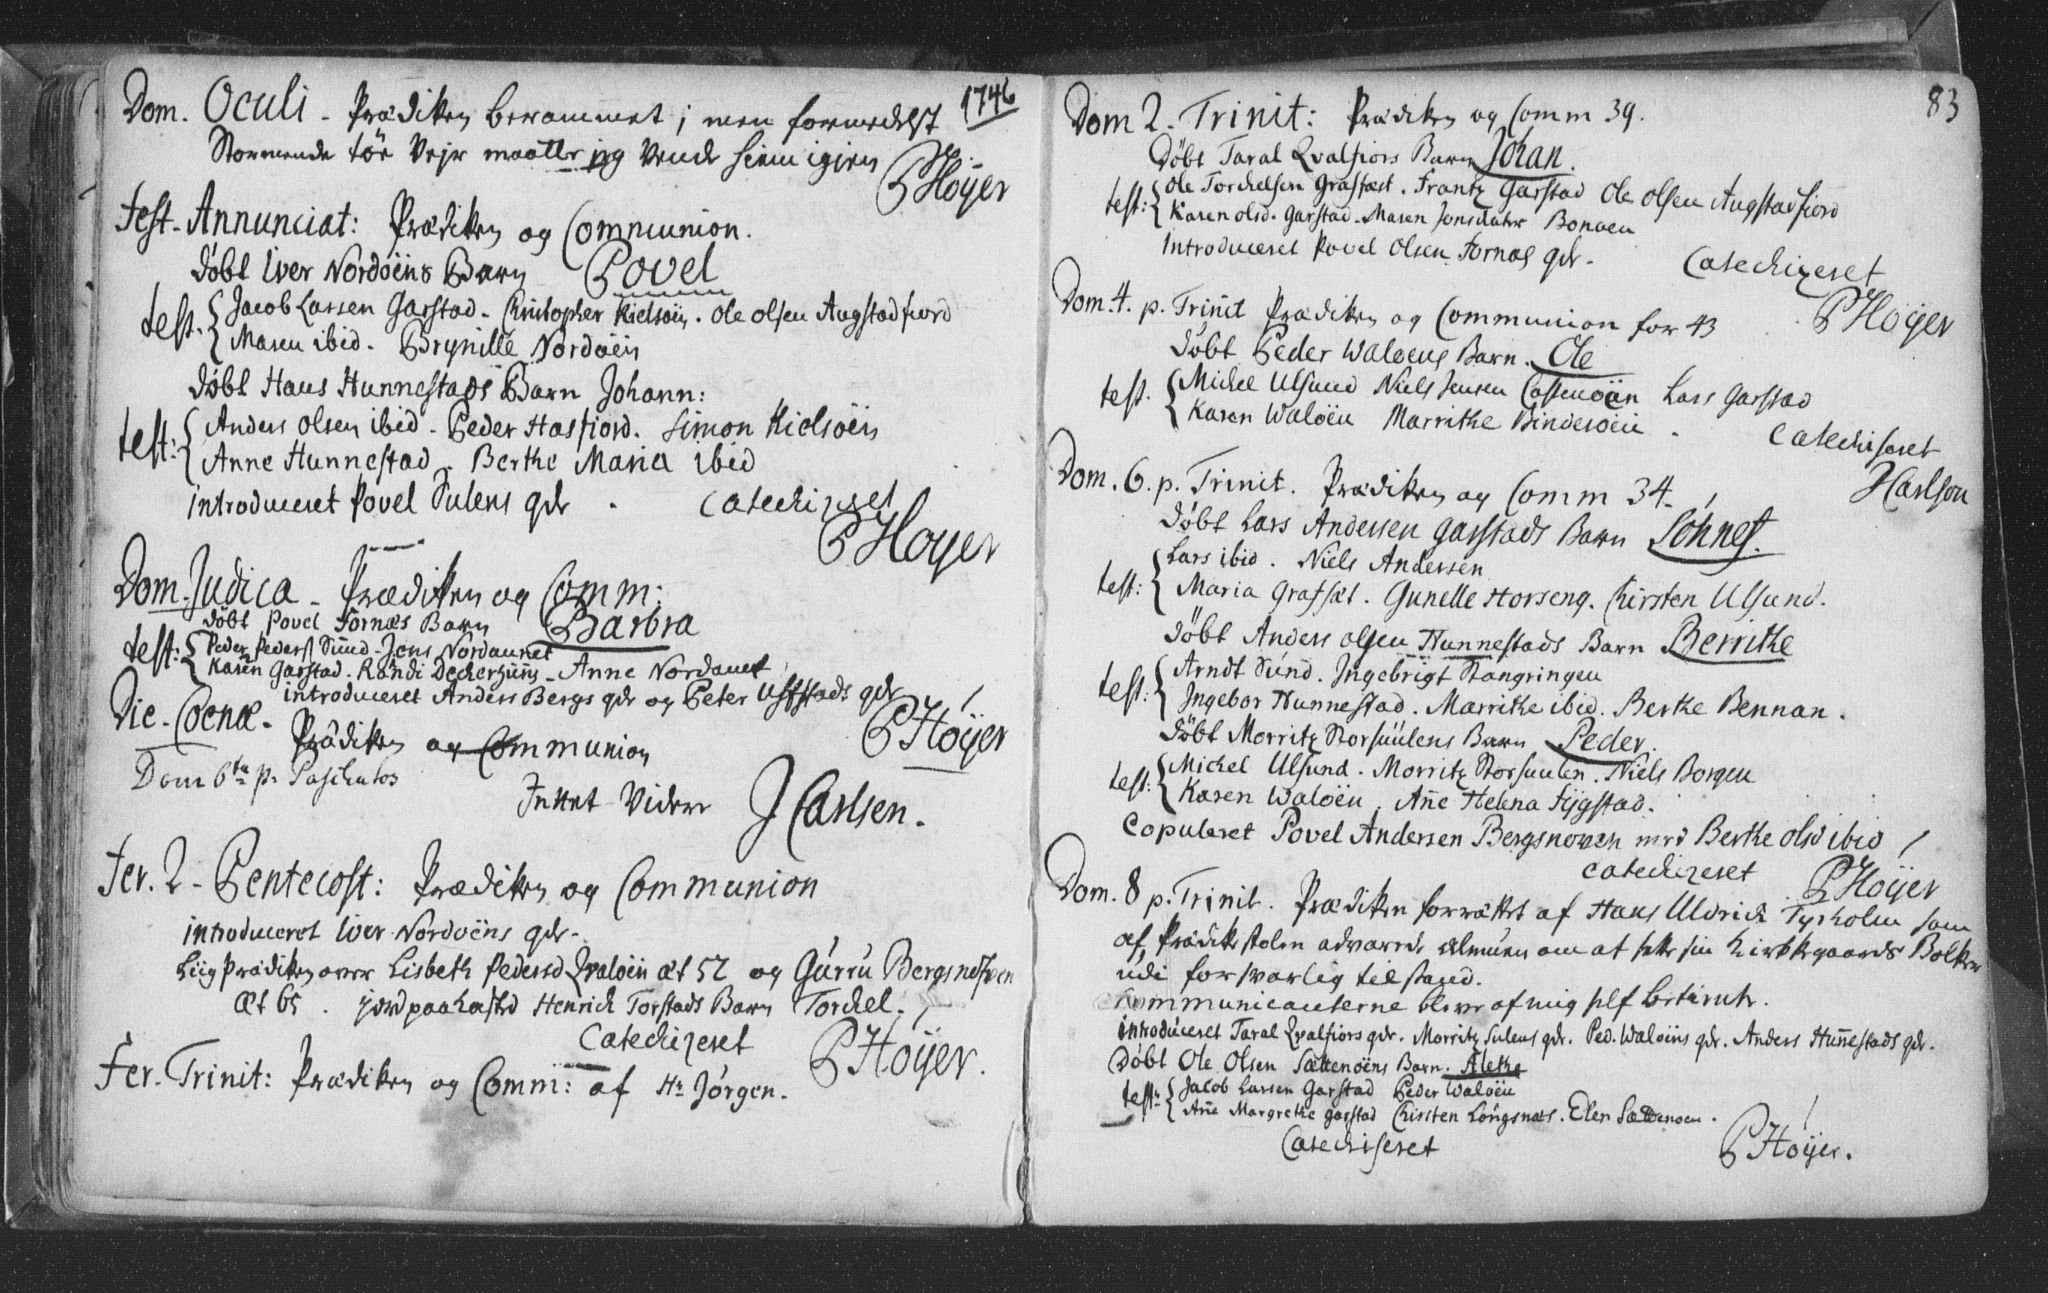 1746
Dom. Oculi - Prædiken berammet; men formedelst
Stormende tör Vejr maatte jeg Vende hiem igien
PHøÿer
Fest. Annunciat: Prædiken og Communion.
Döbt Iver Nordöens Barn Povel
test. Jacob Larsen Garstad. Christopher Kielsöin. Ole olsen Augstadfiord
Maren ibid. Brynille Nordöen
Döbt Hans Hunnestads Barn Johann:
test: Anders olsen ibid. Peder Hasfiord. Simon Kielsöen
Anne Hunnestad. Berthe Maria ibid
introduceret Povel Sulens qdr. Catechizeret
PHoÿer
Dom. Judica - Prædiken og Comm:
Döbt Povel Fornæs Barn Barbra
test: Peder Peders. Sund. Jens Nordaunet
Karen Garstad. Randi - Anne Nordaunet
introduceret Anders Bergs qdr og Peter qdr
PHöÿer
Die. Coenæ. Prædiken og Communion
Dom 6ta p. Paschatos
Intet Videre J Carlsen.
Fer. 2 - Pentecost: Prædiken og Communion
introduceret Iver Nordöens qdr.
Liigprædiken over Lisbeth Pedersd Qvalöen æt 52 og Gurru Bergsnefven
Æt 65. jordpaakasted Henrich Torstads Barn Torckel.
Catechizeret PHöÿer.
Fer. Trinit: Prædiken og Comm: af Hr Jörgen.
83
Dom 2. Trinit: Prædiken og Comm 39.
Döbt Taral Qvalfiors Barn Johan.
test: Ole Torchelsen Grafsæt. Frantz Garstad Ole olsen Augstadfiord
Karen olsd. Garstad. Maren Jonsdater Bonöen
introduceret Povel Olsen Fornæs qdr. Catechizeret
PHoÿer
Dom. 4. p. Trinit Prædiken og Communion for 43
Döbt Peder Waløens Barn. Ole
test. Michel Ulsund Niels Jensen Lars Garstad
Karen Waløen Marrithe Bindesöen.
Catechiseret
JCarlson
Dom. 6. p. Trinit. Prædiken og Comm 34.
Döbt Lars Andersen Garstads Barn Johnes.
test: Lars ibid. Niels Andersen
Maria Grafsæt. Gunelle Horseng. Chirsten Ulsund.
Döbt Anders olsen Hunnestads Barn Berrithe
test: Arndt Sund. Ingebrigt Stangringen
Ingebor Hunnestad. Marrithe ibid. Berthe Bennan.
Döbt Morritz Storsuulens Barn Peder.
test: Michel Ulsund. Morritz Storsuulen. Niels Borgen
Karen Waløen. Añe Helena Fijgstad.
Copuleret Povel Andersen Bergsnoven med Berthe olsd ibid
Catechizeret PHöÿer
Dom. 8 p. Trinit. Prædiken forrættet af Hans Uldrich Tyrholm som
af Prædikestolen advarede almuen om at sette sin Kirkegaards Bolker
udi forsvarlig tilstand.
Communicanterne blev af mig self betient.
introduceret Taral Qvalfiors qdr. Morritz Sulens qdr. Ped. Waløens qdr. Anders Huñestads qdr.
Döbt Ole Olsen Sættenöens Barn. Alethe
test: Jacob Larsen Garstad Peder Waløen
Añe Margrethe Garstad Chirsten Longsnæs. Elen Sættenoen.
Catechiseret PHoÿer.